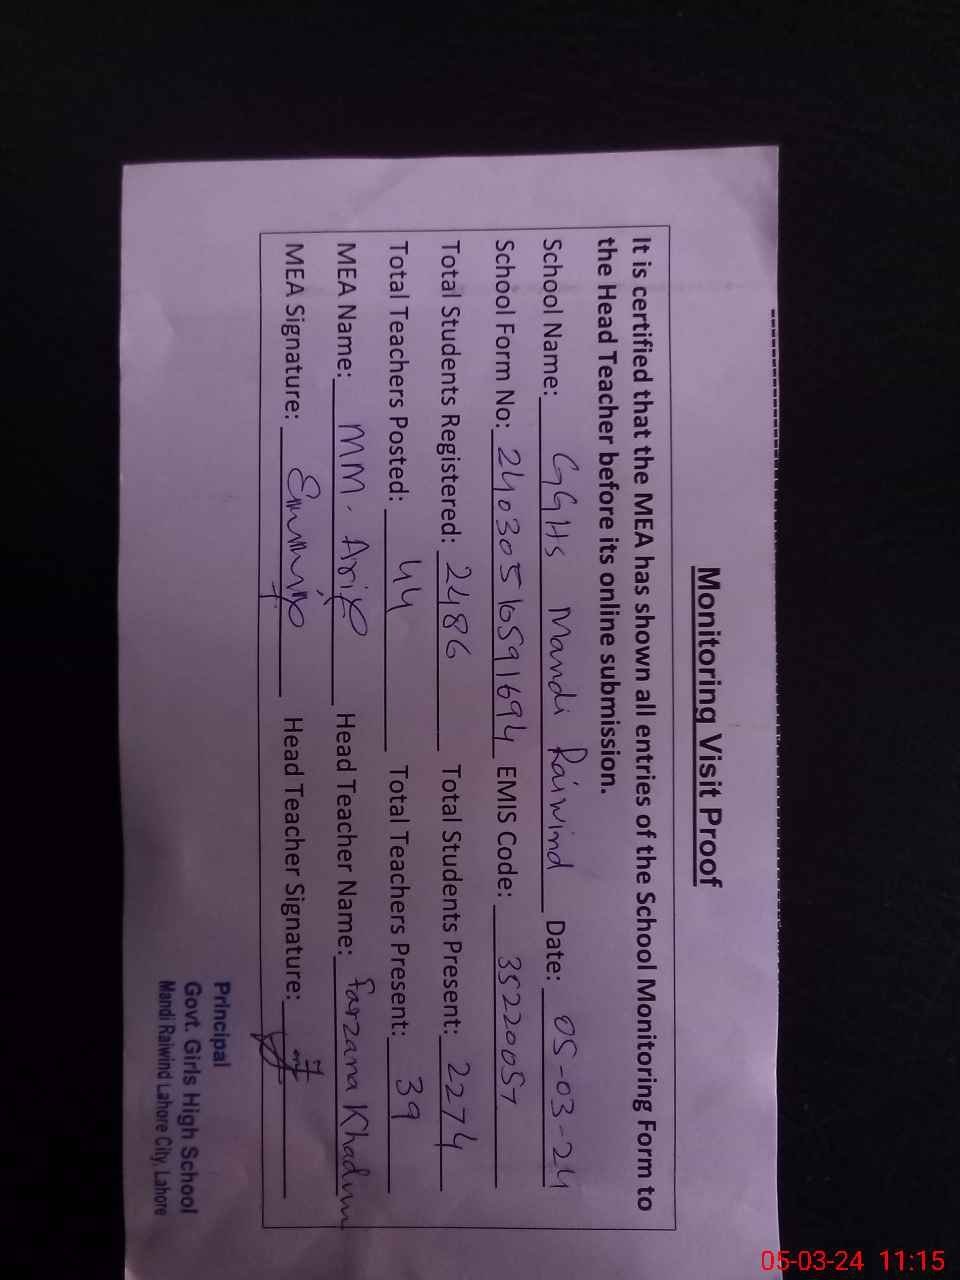 Monitoring Visit Proof
It is certified that the MEA has shown all entries of the School Monitoring Form to
the Head Teacher before its online submission.
School Name: GGHS Mandi Raiwind Date: 05-03-24
School Form No: 2403051059 1694 EMIS Code: 35220057
Total Students Registered: 2486 Total Students Present: 2274
Total Teachers Posted: 44 Total Teachers Present: 39
MEA Name: MM. Arif Head Teacher Name: Farzana Khadim
MEA Signature: Head Teacher Signature:
Principal
Govt. Girls High School
Mandi Raiwind Lahore City, Lahore
05-03-24 11:15